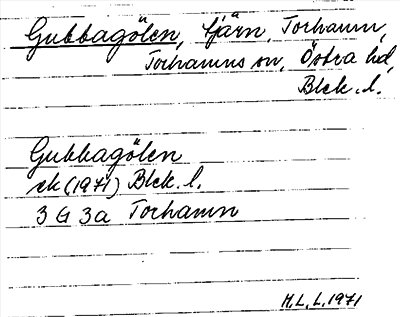 Gubbagölen, tjärn, Torhamn,
Torhamns sn, Östra hd,
Blek. l.
Gubbagölen
ek (1971) Blek. l.
3 G 3a Torhamn
M. L. L. 1971